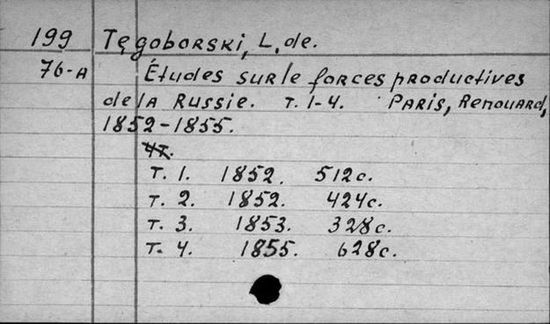 199 Tęgoborski, L, de.
76-A Études sur le forces productives
de la Russie. T. 1-4. Paris, Renouard,
1852-1855.
T. 1. 1852. 512c.
T. 2. 1852. 424c.
T. 3. 1853. 328c.
T. 4. 1855. 628c.